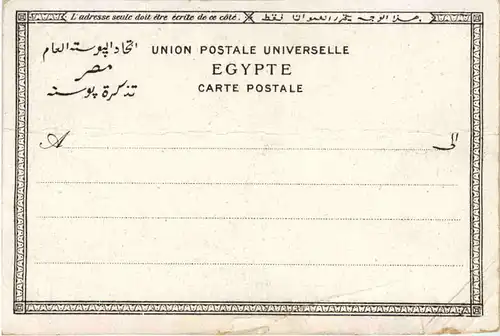 L'adresse seule doit être écrite de ce côté. هذا الوجه يتحرر العنوان فقط
UNION POSTALE UNIVERSELLE اتحاد البوسته العام
EGYPTE مصر
CARTE POSTALE تذكرة بوسته
A الى